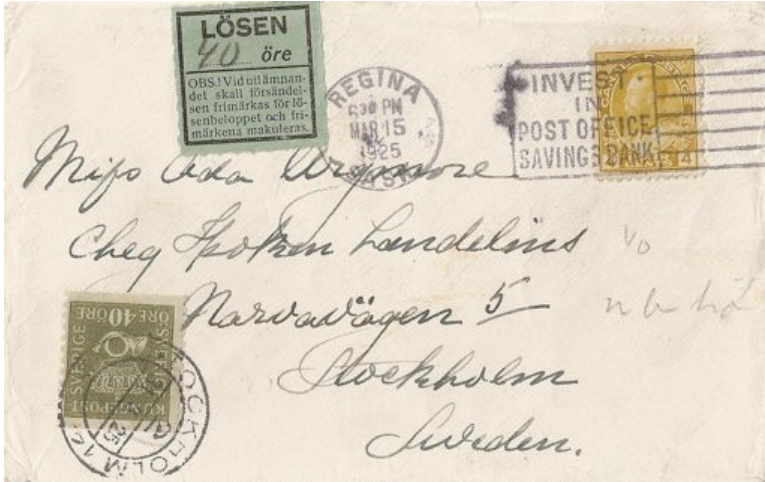 LÖSEN
40 öre
OBS.! Vid utlämnan-
det skall försändel-
sen frimärkas för lö-
senbeloppet och fri-
märkena makuleras.
REGINA
630 PM
MAR 15
1925
SASK
INVEST
IN
POST OFFICE
SAVINGS BANK
Miss Ada
Landelius
Narvavägen 5
Stockholm
Sweden.
SVERIGE
ÖRE 40 ÖRE
KUNGL POST
STOCKHOLM 14
25